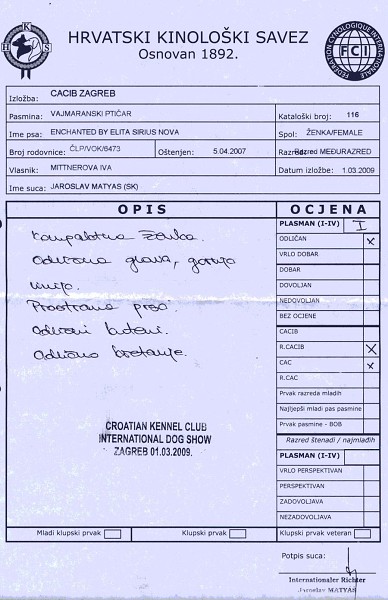 HRVATSKI KINOLOŠKI SAVEZ
Osnovan 1892.
H K S
FCI
FEDERATION CYNOLOGIQUE INTERNATIONALE
Izložba: CACIB ZAGREB
Pasmina: VAJMARANSKI PTIČAR Kataloški broj: 116
Ime psa: ENCHANTED BY ELITA SIRIUS NOVA Spol: ŽENKA/FEMALE
Broj rodovnice: ČLP/VOK/6473 Oštenjen: 5.04.2007 Razred: Razred MEĐURAZRED
Vlasnik: MITTNEROVA IVA Datum izložbe: 1.03.2009
Ime suca: JAROSLAV MATYAS (SK)
OPIS OCJENA
PLASMAN (I-IV) I
kompaktna ženka.
ODLIČAN x
Odlična glava, gornja
VRLO DOBAR
linija.
DOBAR
DOVOLJAN
Prostrana prsa.
NEDOVOLJAN
Odlični kutovi.
BEZ OCJENE
Odlično kretanje.
CACIB
R.CACIB X
CAC x
R.CAC
Prvak razreda mladih
Najljepši mladi pas pasmine
Prvak pasmine - BOB
CROATIAN KENNEL CLUB
INTERNATIONAL DOG SHOW
ZAGREB 01.03.2009.
Razred štenadi / najmlađih
PLASMAN (I-IV)
VRLO PERSPEKTIVAN
PERSPEKTIVAN
ZADOVOLJAVA
NEZADOVOLJAVA
Mladi klupski prvak Klupski prvak Klupski prvak veteran
Potpis suca:
Internationaler Richter
Jaroslav MATYAS